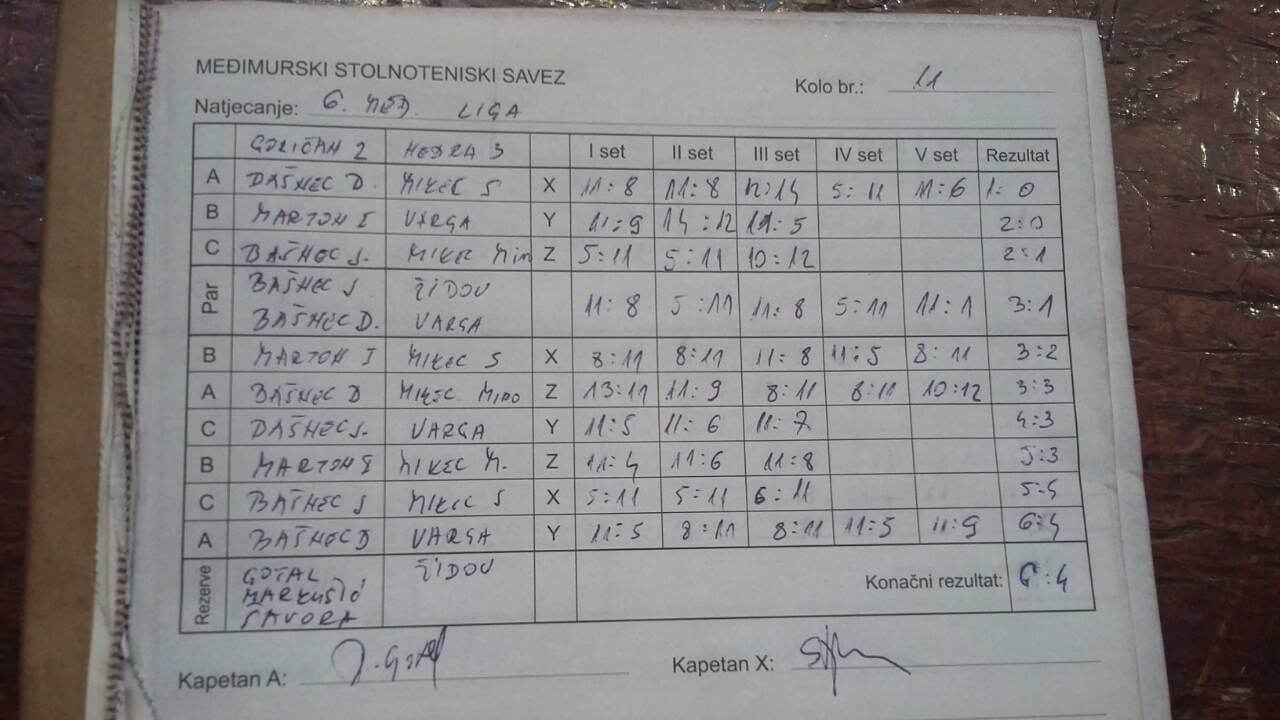 MEĐIMURSKI STOLNOTENISKI SAVEZ
Kolo br.: 11
Natjecanje: 6. MEĐ. LIGA
GORIČAN 2 NEDRA 3 I set II set III set IV set V set Rezultat
A BAŠNEC D. MIKEC S X 11:8 11:8 12:14 5:11 11:6 1:0
B MARTON I VARGA Y 11:9 14:12 11:5 2:0
C BAŠNEC S. MIKEC Z 5:11 5:11 10:12 2:1
Par BAŠNEC S ŽIDOV 11:8 5:11 11:8 5:11 11:1 3:1
BAŠNEC D. VARGA
B MARTON I MIKEC S X 8:11 8:11 11:8 11:5 8:11 3:2
A BAŠNEC D MIKEC MIRO Z 13:11 11:9 8:11 8:11 10:12 3:3
C BAŠNEC S. VARGA Y 11:5 11:6 11:7 4:3
B MARTON I MIKEC M. Z 11:4 11:6 11:8 5:3
C BAŠNEC S MIKEC S X 5:11 5:11 6:11 5:4
A BAŠNEC D VARGA Y 11:5 8:11 8:11 11:5 11:9 6:4
Rezerve GOTAL ŽIDOV Konačni rezultat: 6:4
MARKUŠIĆ
SAVORA
Kapetan A: Kapetan X: